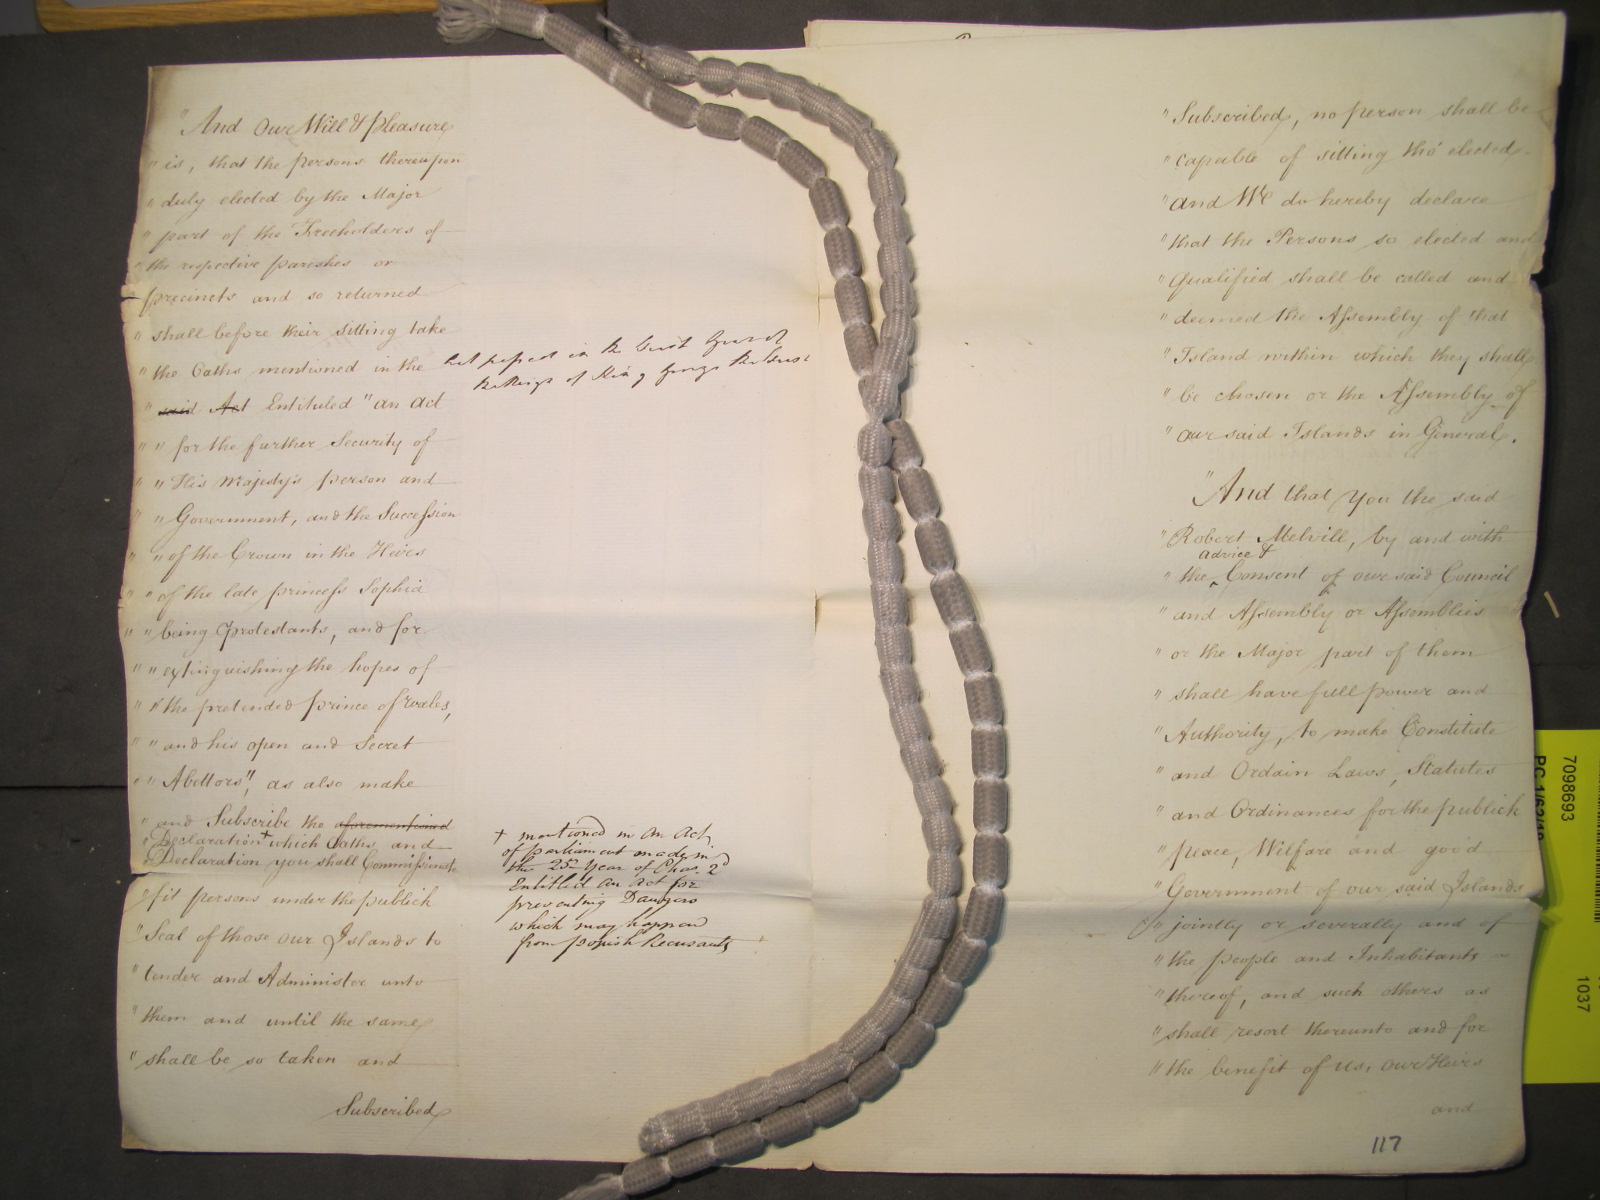 "And Our Will & pleasure
" is, that the persons thereupon
" duly elected by the Major
" part of the Freeholders of
" the respective parishes or
" precincts and so returned
" shall before their sitting take
" the Oaths mentioned in the
" said Act Entituled "an act
" " for the further Security of
" " His Majesty's person and
" " Government, and the Succession
" " of the Crown in the Heirs
" " of the late princess Sophia
" " being Protestants, and for
" " extinguishing the hopes of
" " the pretended prince of Wales,
" " and his open and Secret
" " Abettors", as also make
" and Subscribe the aforementioned
" Declaration + which Oaths and
" Declaration you shall Commissionate
" fit persons under the publick
" Seal of those our Islands to
" tender and Administer unto
" them and until the same
" shall be so taken and
Subscribed
Act passed in the first year of
the Reign of King George the first
+ mentioned in An Act
of parliament made in
the 25th Year of Chas. 2d
Entitled An Act for
preventing Dangers
which may happen
from popish Recusants
" Subscribed, no person shall be
" capable of sitting tho' elected
" and We do hereby declare
" that the Persons so elected and
" Qualified shall be called and
" deemed the Assembly of that
" Island within which they shall
" be chosen or the Assembly of
" our said Islands in General.
" And that you the said
" Robert Melvill, by and with
advice &
" the ‸ Consent of our said Council
" and Assembly or Assemblies
" or the Major part of them
" shall have full power and
" Authority, to make Constitute
" and Ordain Laws, Statutes
" and Ordinances for the publick
" peace, Welfare and good
" Government of our said Islands
" jointly or severally and of
" the people and Inhabitants
" thereof, and such others as
" shall resort thereunto and for
" the benefit of Us, our Heirs
and
117
7098693
1037